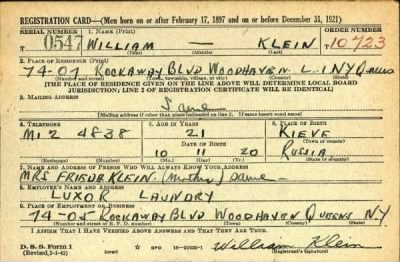 REGISTRATION CARD—(Men born on or after February 17, 1897 and on or before December 31, 1921)
SERIAL NUMBER 1. NAME (Print) ORDER NUMBER
0547 WILLIAM KLEIN 10723
(First) (Middle) (Last)
2. PLACE OF RESIDENCE (Print)
74-05 ROCKAWAY BLVD WOODHAVEN L.I NY QUEENS
(Number and street) (Town, township, village, or city) (County) (State)
[THE PLACE OF RESIDENCE GIVEN ON THE LINE ABOVE WILL DETERMINE LOCAL BOARD
JURISDICTION; LINE 2 OF REGISTRATION CERTIFICATE WILL BE IDENTICAL]
3. MAILING ADDRESS
Same
[Mailing address if other than place indicated on line 2. If same insert word same]
4. TELEPHONE 5. AGE IN YEARS 6. PLACE OF BIRTH
MI 2 4838 21 KIEVE
DATE OF BIRTH (Town or county)
10 11 20 RUSSIA
(Exchange) (Number) (Mo.) (Day) (Yr.) (State or country)
7. NAME AND ADDRESS OF PERSON WHO WILL ALWAYS KNOW YOUR ADDRESS
MRS FRIEDA KLEIN (Mother) Same
8. EMPLOYER'S NAME AND ADDRESS
LUXOR LAUNDRY
9. PLACE OF EMPLOYMENT OR BUSINESS
74-05 ROCKAWAY BLVD WOODHAVEN QUEENS NY
(Number and street or R. F. D. number) (Town) (County) (State)
I AFFIRM THAT I HAVE VERIFIED ABOVE ANSWERS AND THAT THEY ARE TRUE.
D. S. S. Form 1 GPO William Klein
(Revised (Registrant's signature)